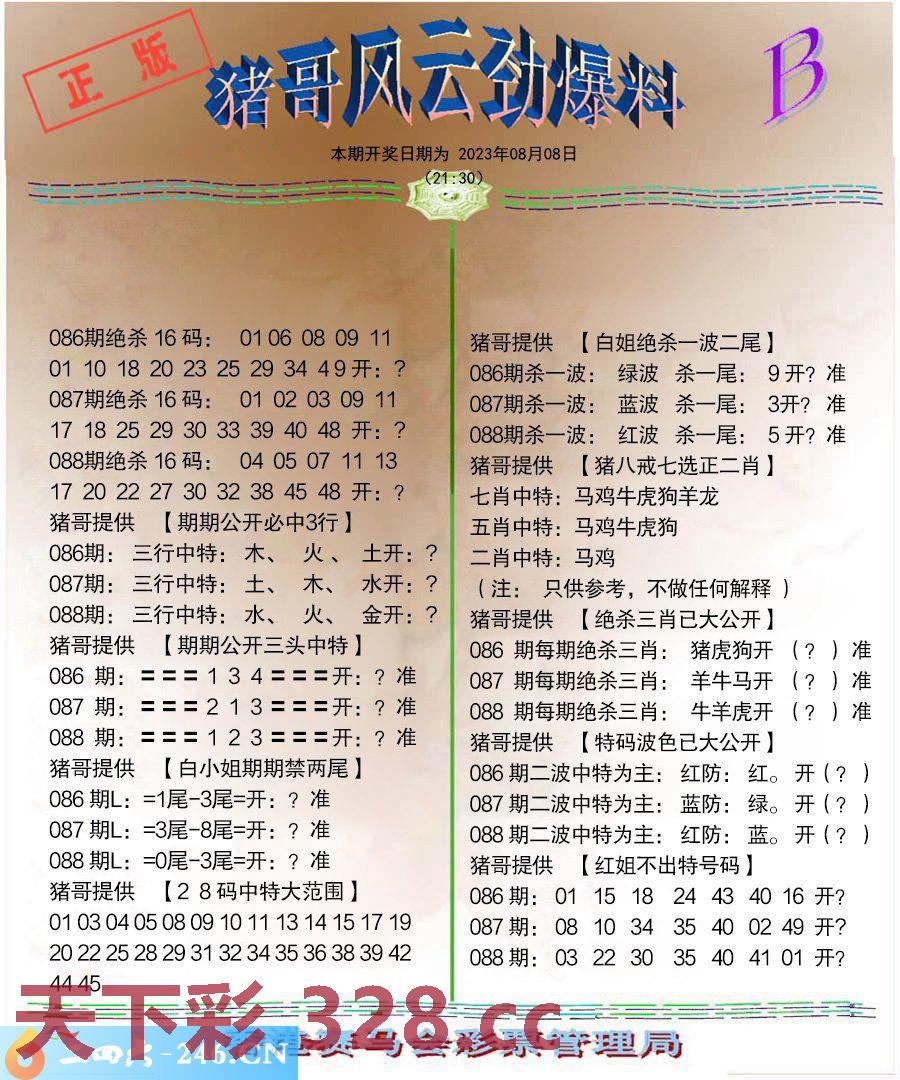 正版
猪哥风云劲爆料
B
本期开奖日期为 2023年08月08日
(21:30)
086期绝杀16码: 01 06 08 09 11
01 10 18 20 23 25 29 34 49开:?
087期绝杀16码: 01 02 03 09 11
17 18 25 29 30 33 39 40 48 开:?
088期绝杀16码: 04 05 07 11 13
17 20 22 27 30 32 38 45 48 开:?
猪哥提供 【期期公开必中3行】
086期: 三行中特: 木、 火、 土开:?
087期: 三行中特: 土、 木、 水开:?
088期: 三行中特: 水、 火、 金开:?
猪哥提供 【期期公开三头中特】
086 期: === 1 3 4 ===开:? 准
087 期: === 2 1 3 ===开:? 准
088 期: === 1 2 3 ===开:? 准
猪哥提供 【白小姐期期禁两尾】
086期L: =1尾-3尾=开:? 准
087期L: =3尾-8尾=开:? 准
088期L: =0尾-3尾=开:? 准
猪哥提供 【28码中特大范围】
01 03 04 05 08 09 10 11 13 14 15 17 19
20 22 25 28 29 31 32 34 35 36 38 39 42
44 45
猪哥提供 【白姐绝杀一波二尾】
086期杀一波: 绿波 杀一尾: 9开? 准
087期杀一波: 蓝波 杀一尾: 3开? 准
088期杀一波: 红波 杀一尾: 5开? 准
猪哥提供 【猪八戒七选正二肖】
七肖中特: 马鸡牛虎狗羊龙
五肖中特: 马鸡牛虎狗
二肖中特: 马鸡
(注: 只供参考,不做任何解释)
猪哥提供 【绝杀三肖已大公开】
086 期每期绝杀三肖: 猪虎狗开 (?)准
087 期每期绝杀三肖: 羊牛马开 (?)准
088 期每期绝杀三肖: 牛羊虎开 (?)准
猪哥提供 【特码波色已大公开】
086期二波中特为主: 红防: 红。开(?)
087期二波中特为主: 蓝防: 绿。开(?)
088期二波中特为主: 红防: 蓝。开(?)
猪哥提供 【红姐不出特号码】
086期: 01 15 18 24 43 40 16 开?
087期: 08 10 34 35 40 02 49 开?
088期: 03 22 30 35 40 41 01 开?
天下彩 328.cc
-246.CN
赛马会彩票管理局